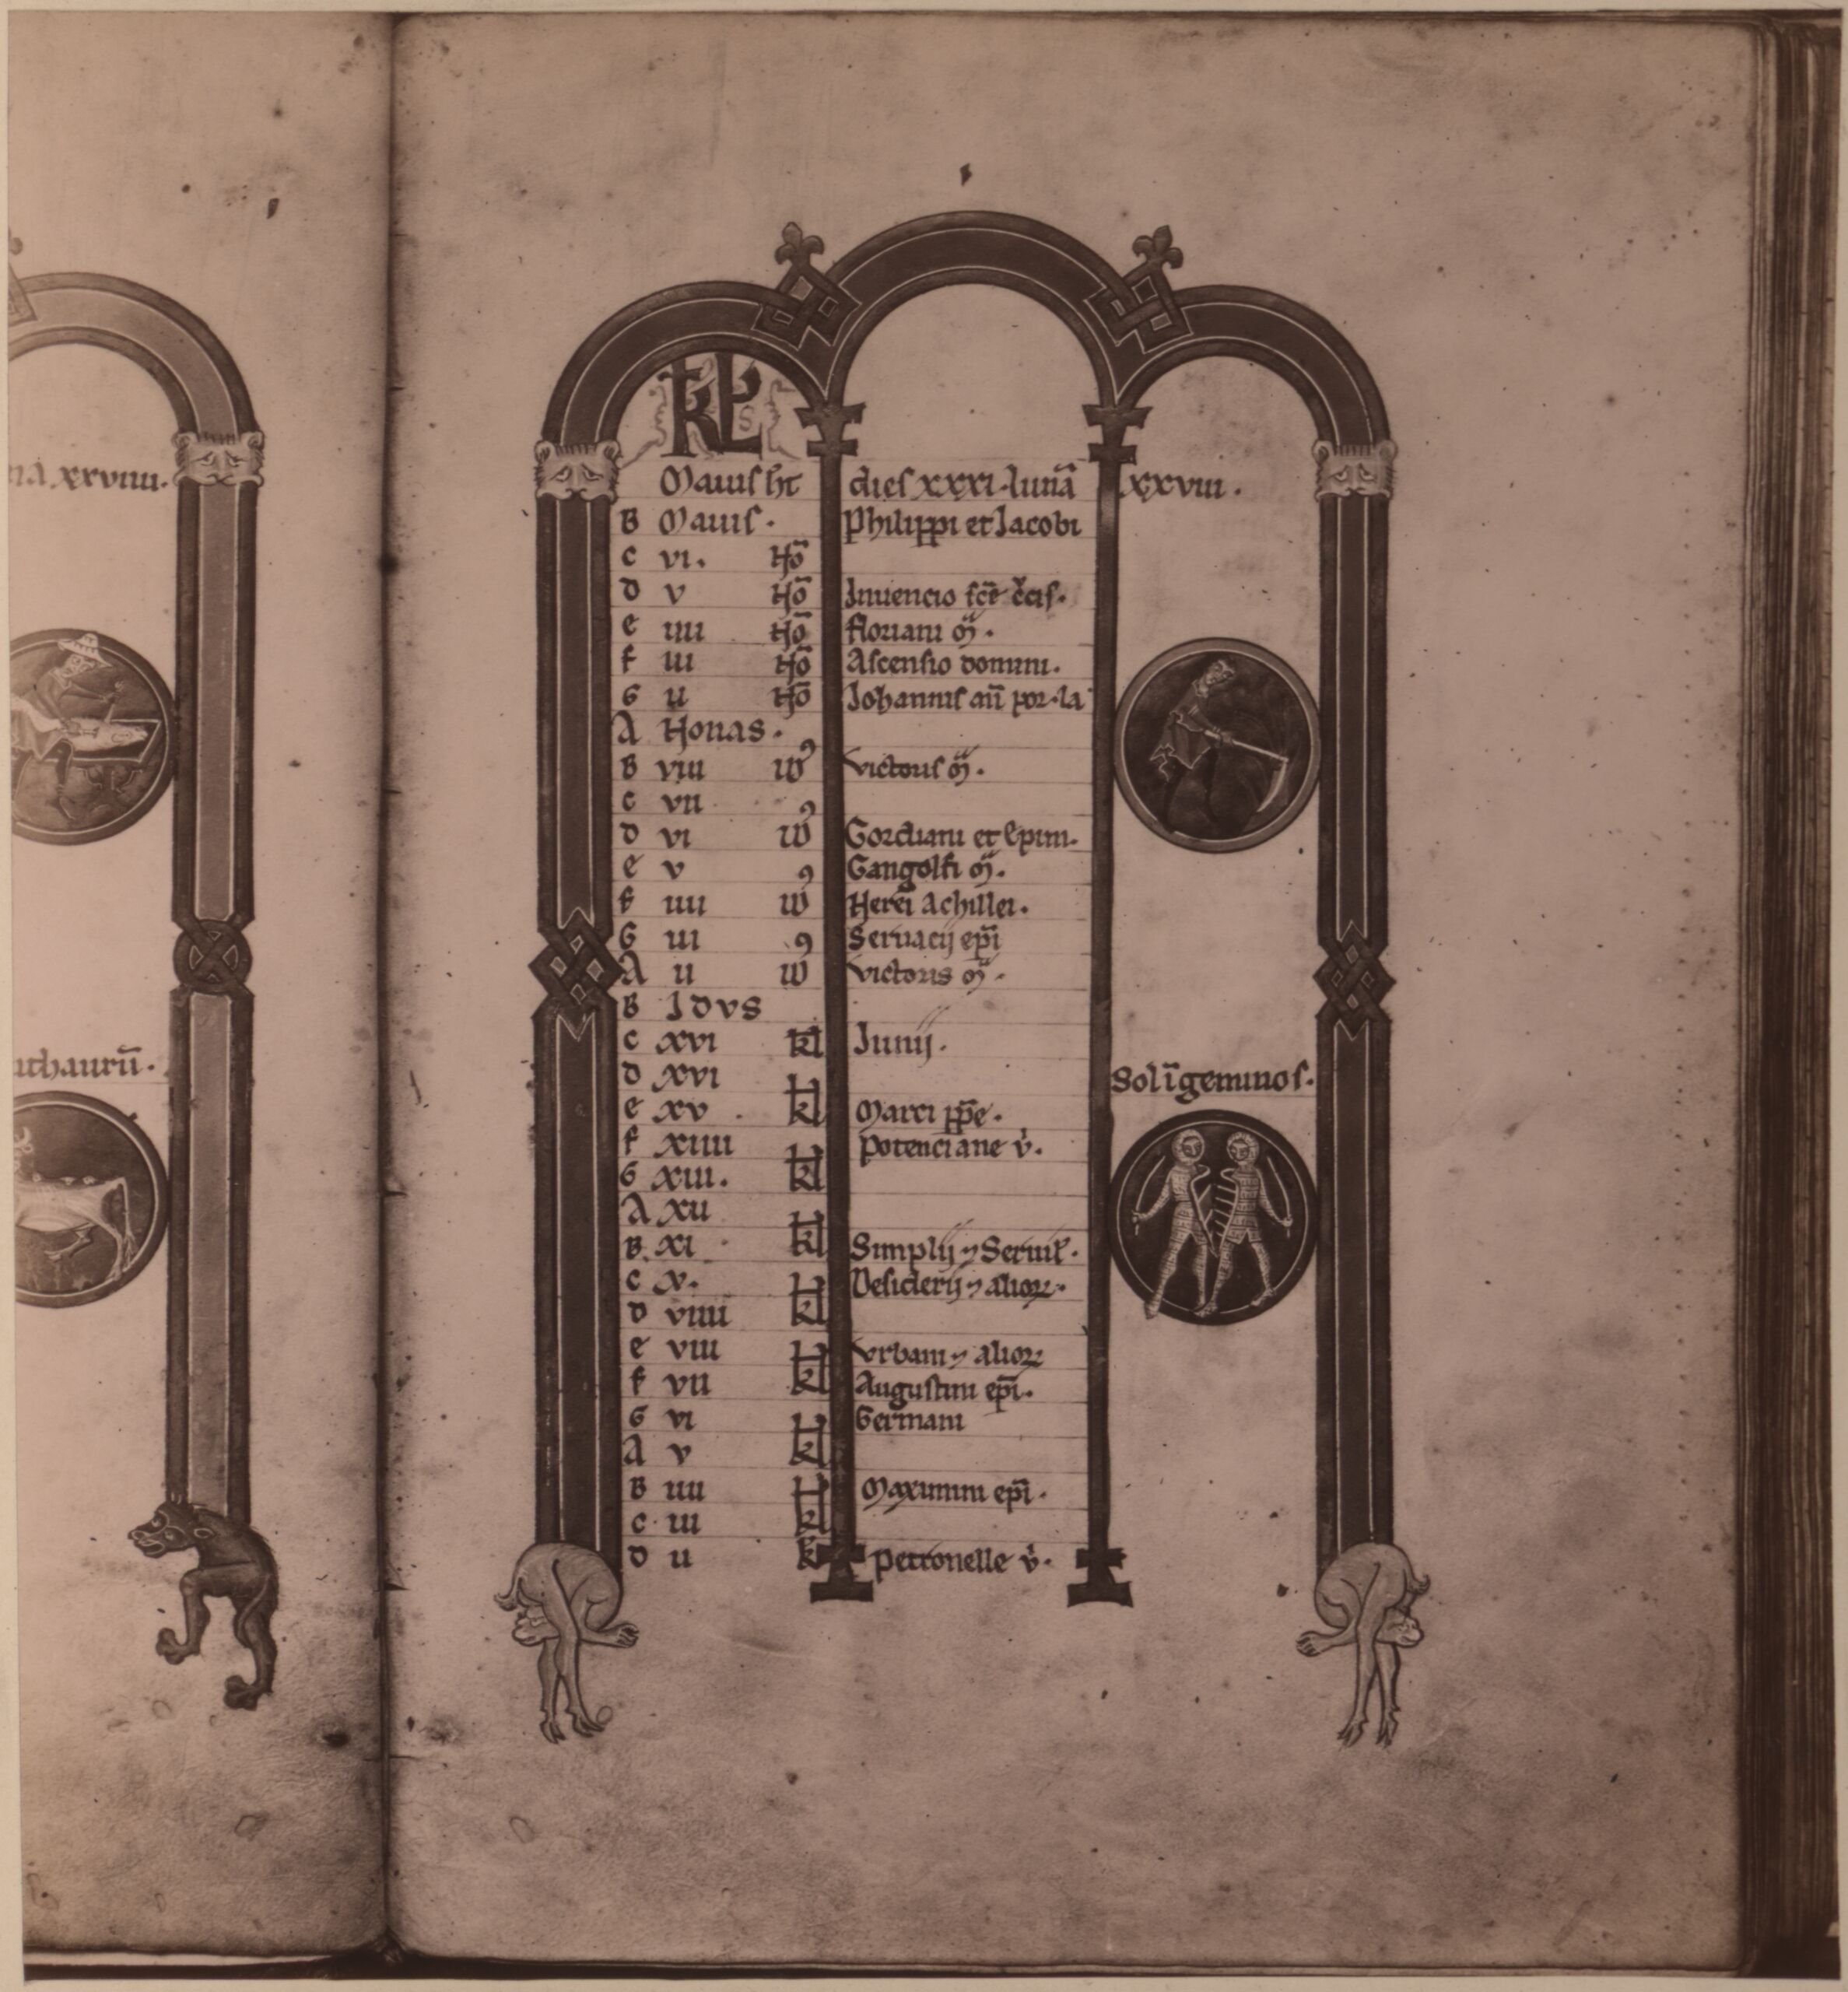 na xxviiii.
uthaurū.
KL
Maius ht dies xxxi luna xxviii.
B Maius. Philippi et Jacobi
c vi. No
d v No Inuencio scē c̄cis.
e iiii No floriani m̄.
f iii No Ascensio domini.
G ii No Johannis an̄ por la
A Nonas.
B viii id9 victoris m̄.
c vii
d vi id9 Gordiani et Epim.
e v Gangolfi m̄.
f iiii id9 Nerei Achillei.
G iii Seruacij epī
A ii id9 victoris m̄.
B Idvs
c xvi kl Junij.
d xvi
e xv kl Marci pp̄e.
f xiiii potenciane v̇.
G xiii. kl
A xii
B xi kl Simplij ⁊ Seruil.
c x. Desiderij ⁊ alioꝝ.
d viiii kl
e viii vrbani ⁊ alioꝝ
f vii kl Augustini epī.
G vi Germani
A v kl
B iiii Maximini epī.
c iii kl
d ii kl petronelle v̇.
Sol ī geminos.